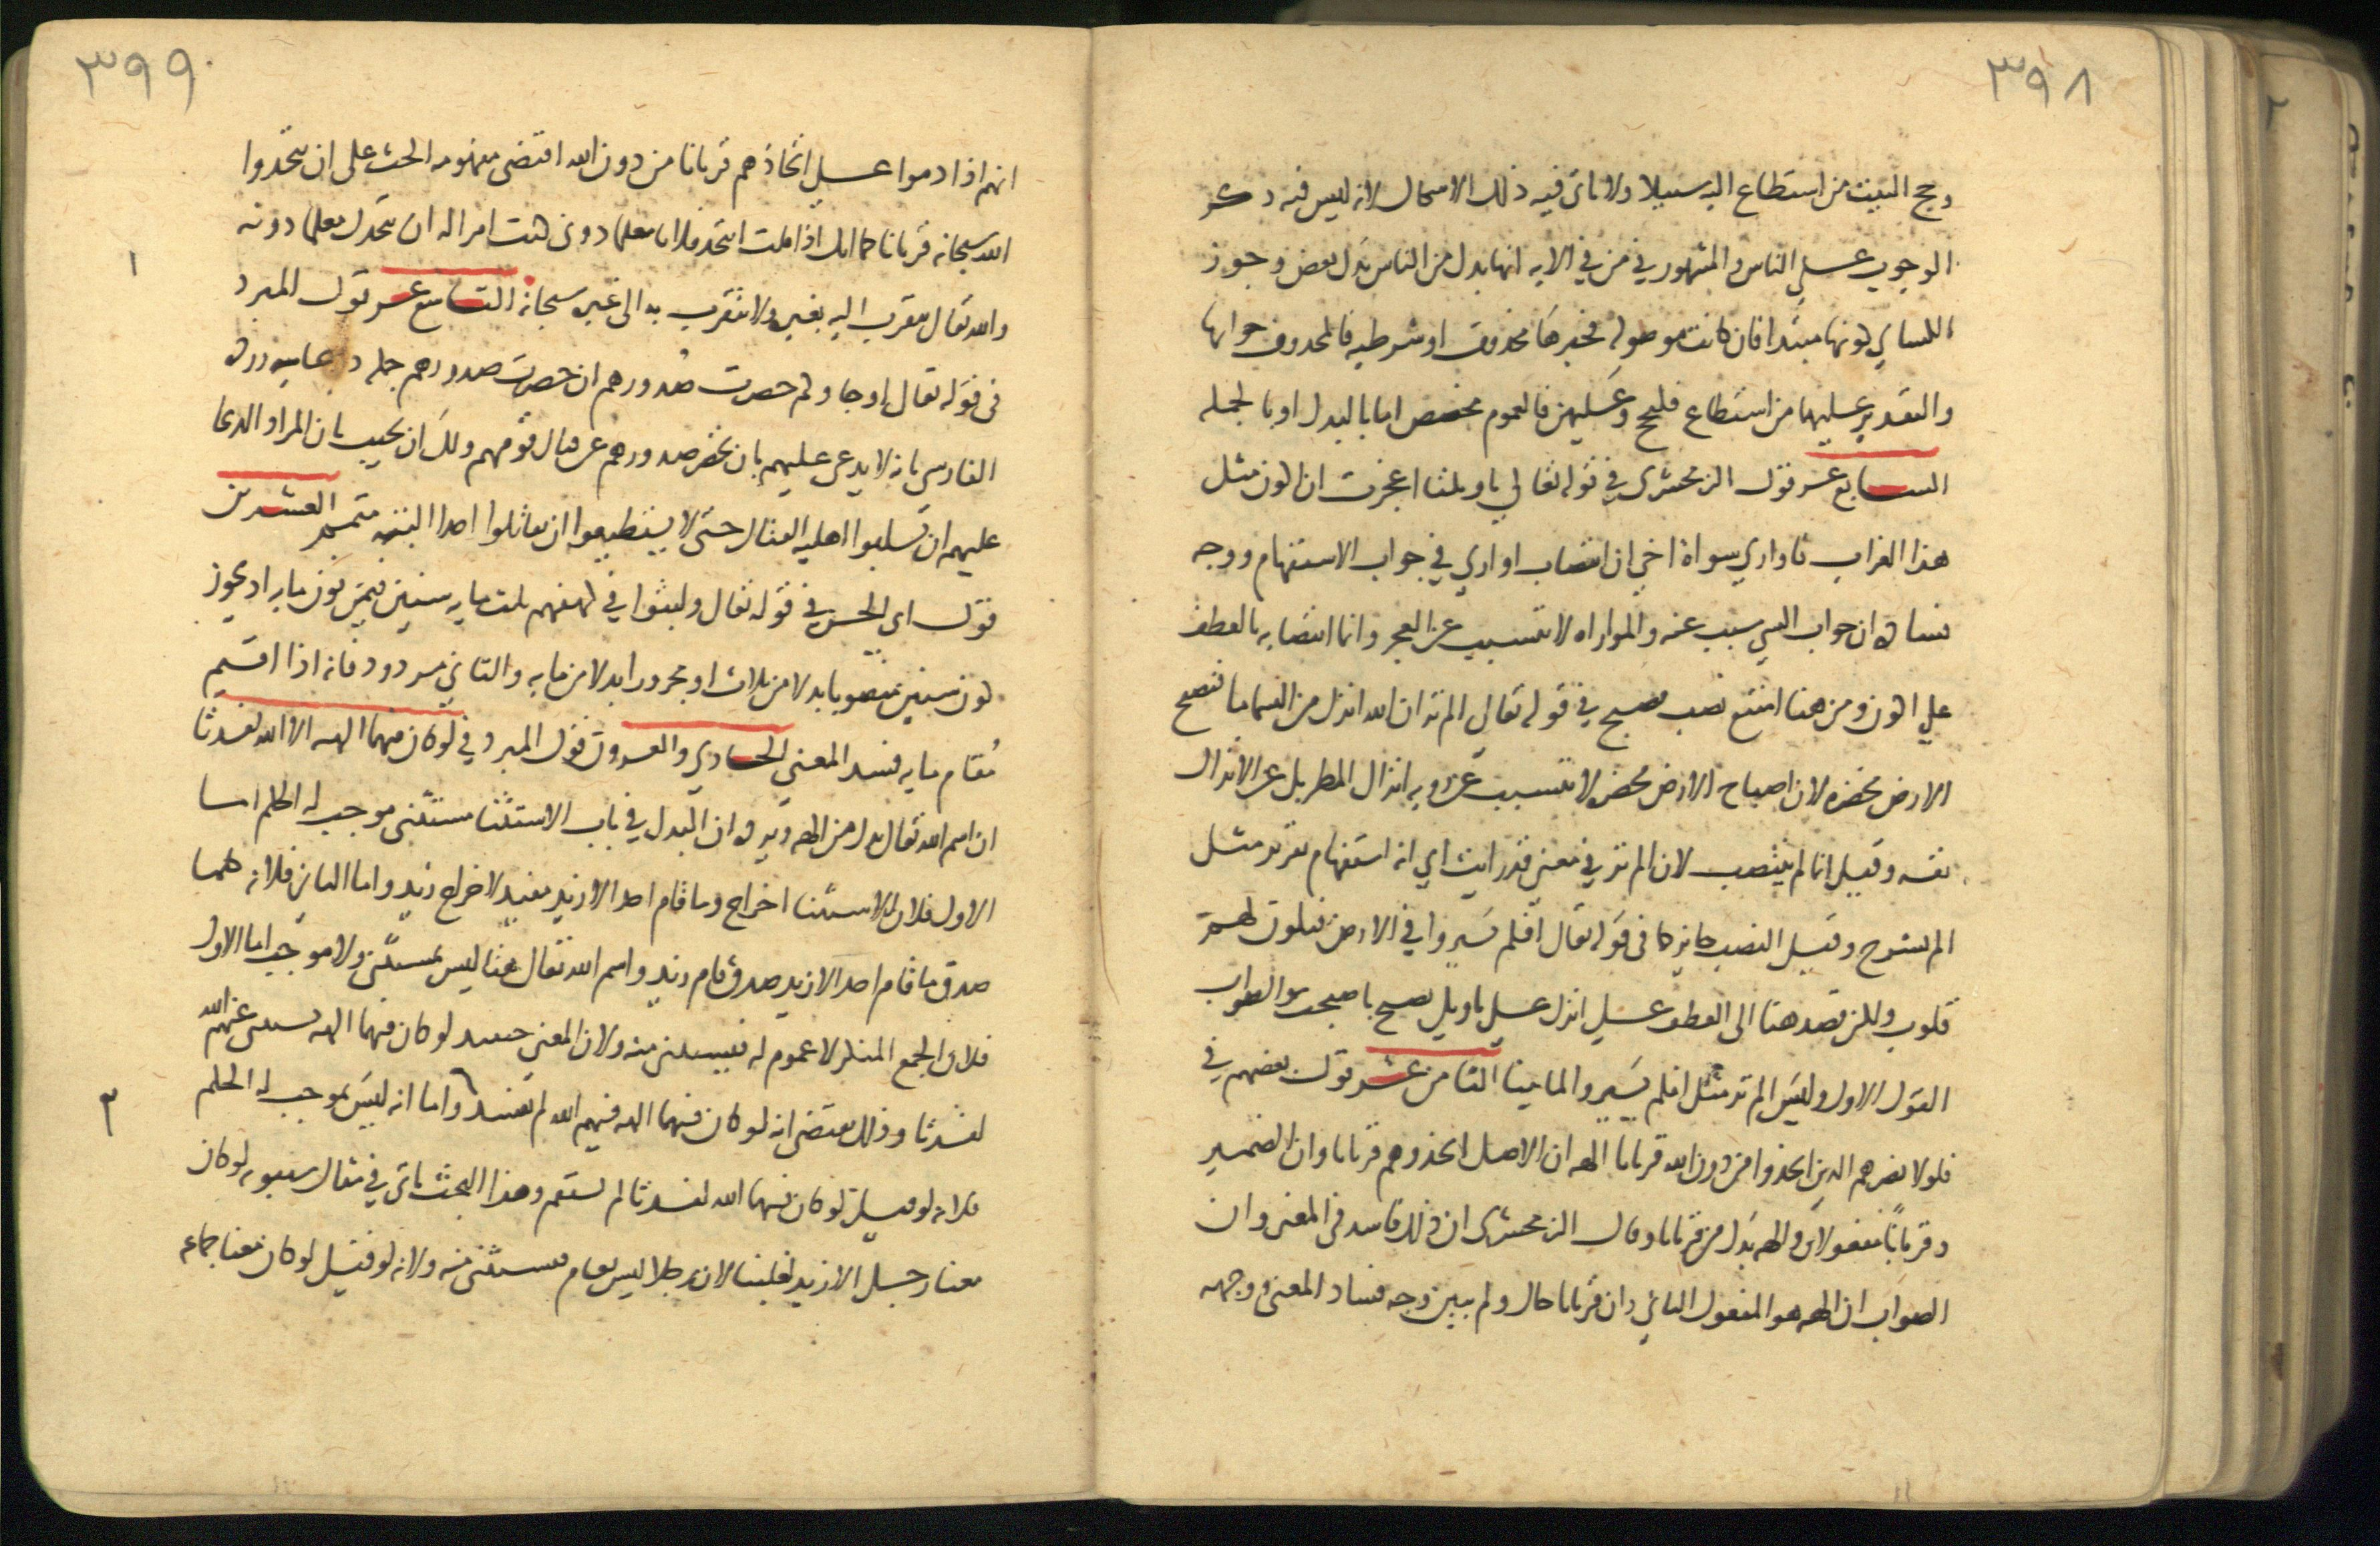 ٣٩٨
وحج البيت من استطاع اليه سبيلا ولا ياتى فيه ذلك الاشكال لانه ليس فيه ذكر
الوجوب على الناس والمشهور في من في الايه انها بدل من الناس بدل بعض وجوز
الكساي كونها مبتدا فان كانت موصولة فخبرها محذوف او شرطيه فالمحذوف جوابها
والتقدير عليهما من استطاع فليحج وعليهن فالعموم مخصص اما بالبدل او بالجمله
السابع عشر قول الزمخشرى في قوله تعالي ياويلتا اعجزت ان اكون مثل
هذا الغراب فاواري سواة اخي ان انتصاب اواري في جواب الاستفهام ووجه
فساده ان جواب الشي مسبب عنه والمواراه لا تتسبب عن العجز وانما انتصابه بالعطف
علي اكون ومن هنا امتنع نصب تصبح في قوله تعالى الم تر ان الله انزل من السما ما فتصبح
الارض مخضره لان اصباح الارض مخضره لا يتسبب عن رويه انزال المطر بل عن الانزال
نفسه وقيل انما لم ينتصب لان الم تر في معنى قد رايت اي انه استفهام تقرير مثل
الم نشرح وقيل النصب جايز كما فى قوله تعال افلم يسيروا في الارض فتكون لهم
قلوب ولكن قصد هنا الى العطف على انزل على تاويل تصبح باصبحت والصواب
القول الاول وليس الم تر مثل افلم يسيروا لما بينا الثامن عشر قول بعضهم في
فلولا نصرهم الذين اتخذوا من دون الله قربانا الهه ان الاصل اتخذوهم قربانا وان الضمير
وقربانا مفعولان والهه بدل من قربانا وقال الزمخشرى ان ذلك فاسد فى المعنى وان
الصواب ان الهه هو المفعول الثاني وان قربانا حال ولم يبين وجه فساد المعنى ووجهه
٣٩٩
انهم اذا ذموا على اتخاذهم قربانا من دون الله اقتضى مفهومه الحث على ان يتخذوا
الله سبحانه قربانا كما انك اذا قلت اتتخذ فلانا معلما دونى كنت امرا له ان يتخذك معلما دونه
والله تعال يتقرب اليه بغيره ولا يتقرب به الى غيره سبحانه التاسع عشر قول المبرد
فى قوله تعال او جاوكم حصرت صدورهم ان حصرت صدورهم جمله دعاييه ورده
الفارسي بانه لا يدعى عليهم بان تحصر صدورهم عن قتال قومهم ولك ان تجيب بان المراد الدعا
عليهم ان يسلبوا اهليه القتال حتى لا يستطيعوا ان يقاتلوا احدا البته متمم العشرين
قول ابي الحسن في قوله تعال ولبثوا في كهفهم ثلت مايه سنين فيمن نون مايه انه يجوز
كون سنين منصوبا بدلا من ثلاث او مجرورا بدلا من مايه والثاني مردود فانه اذا اقيم
مقام مايه فسد المعني الحادي والعشرون قول المبرد في لو كان فيهما الهه الا الله لفسدتا
ان اسم الله تعال بدل من الهه ويرده ان البدل في باب الاستثنا مستثنى موجب له الحكم اما
الاول فلان الاستثنا اخراج وما قام احد الا زيد مفيد لاخراج زيد واما الثاني فلانه كلما
صدق ما قام احد الا زيد صدق قام زيد واسم الله تعال هنا ليس بمستثنى ولا موجب اما الاول
فلان الجمع المنكر لا عموم له فيستثنى منه ولان المعني حينئذ لو كان فيهما الهه مستثنى عنهم الله
لفسدتا وذلك يقتضى انه لو كان فيهما الهه فيهم الله لم تفسدا واما انه ليس بموجب له الحكم
فلانه لو قيل لو كان فيهما الله لفسدتا لم يستقم وهذا البحث ياتى في مثال سيبويه لو كان
معنا رجل الا زيد لغلبنا لان رجلا ليس بعام فيستثنى منه ولانه لو قيل لو كان معنا جماعه
١
٢